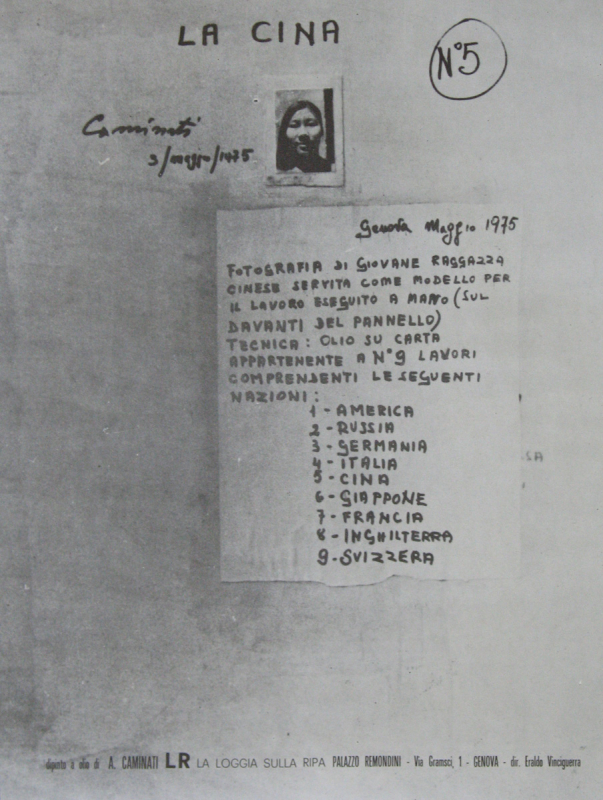 LA CINA
N°5
Caminati
3/maggio/1975
Genova Maggio 1975
FOTOGRAFIA DI GIOVANE RAGGAZZA
CINESE SERVITA COME MODELLO PER
IL LAVORO ESEGUITO A MANO (SUL
DAVANTI DEL PANNELLO)
TECNICA: OLIO SU CARTA
APPARTENENTE A N°9 LAVORI
COMPRENDENTI LE SEGUENTI
NAZIONI:
1 - AMERICA
2 - RUSSIA
3 - GERMANIA
4 - ITALIA
5 - CINA
6 - GIAPPONE
7 - FRANCIA
8 - INGHILTERRA
9 - SVIZZERA
dipinto a olio di A. CAMINATI LR LA LOGGIA SULLA RIPA PALAZZO REMONDINI - Via Gramsci, 1 - GENOVA - dir. Eraldo Vinciguerra